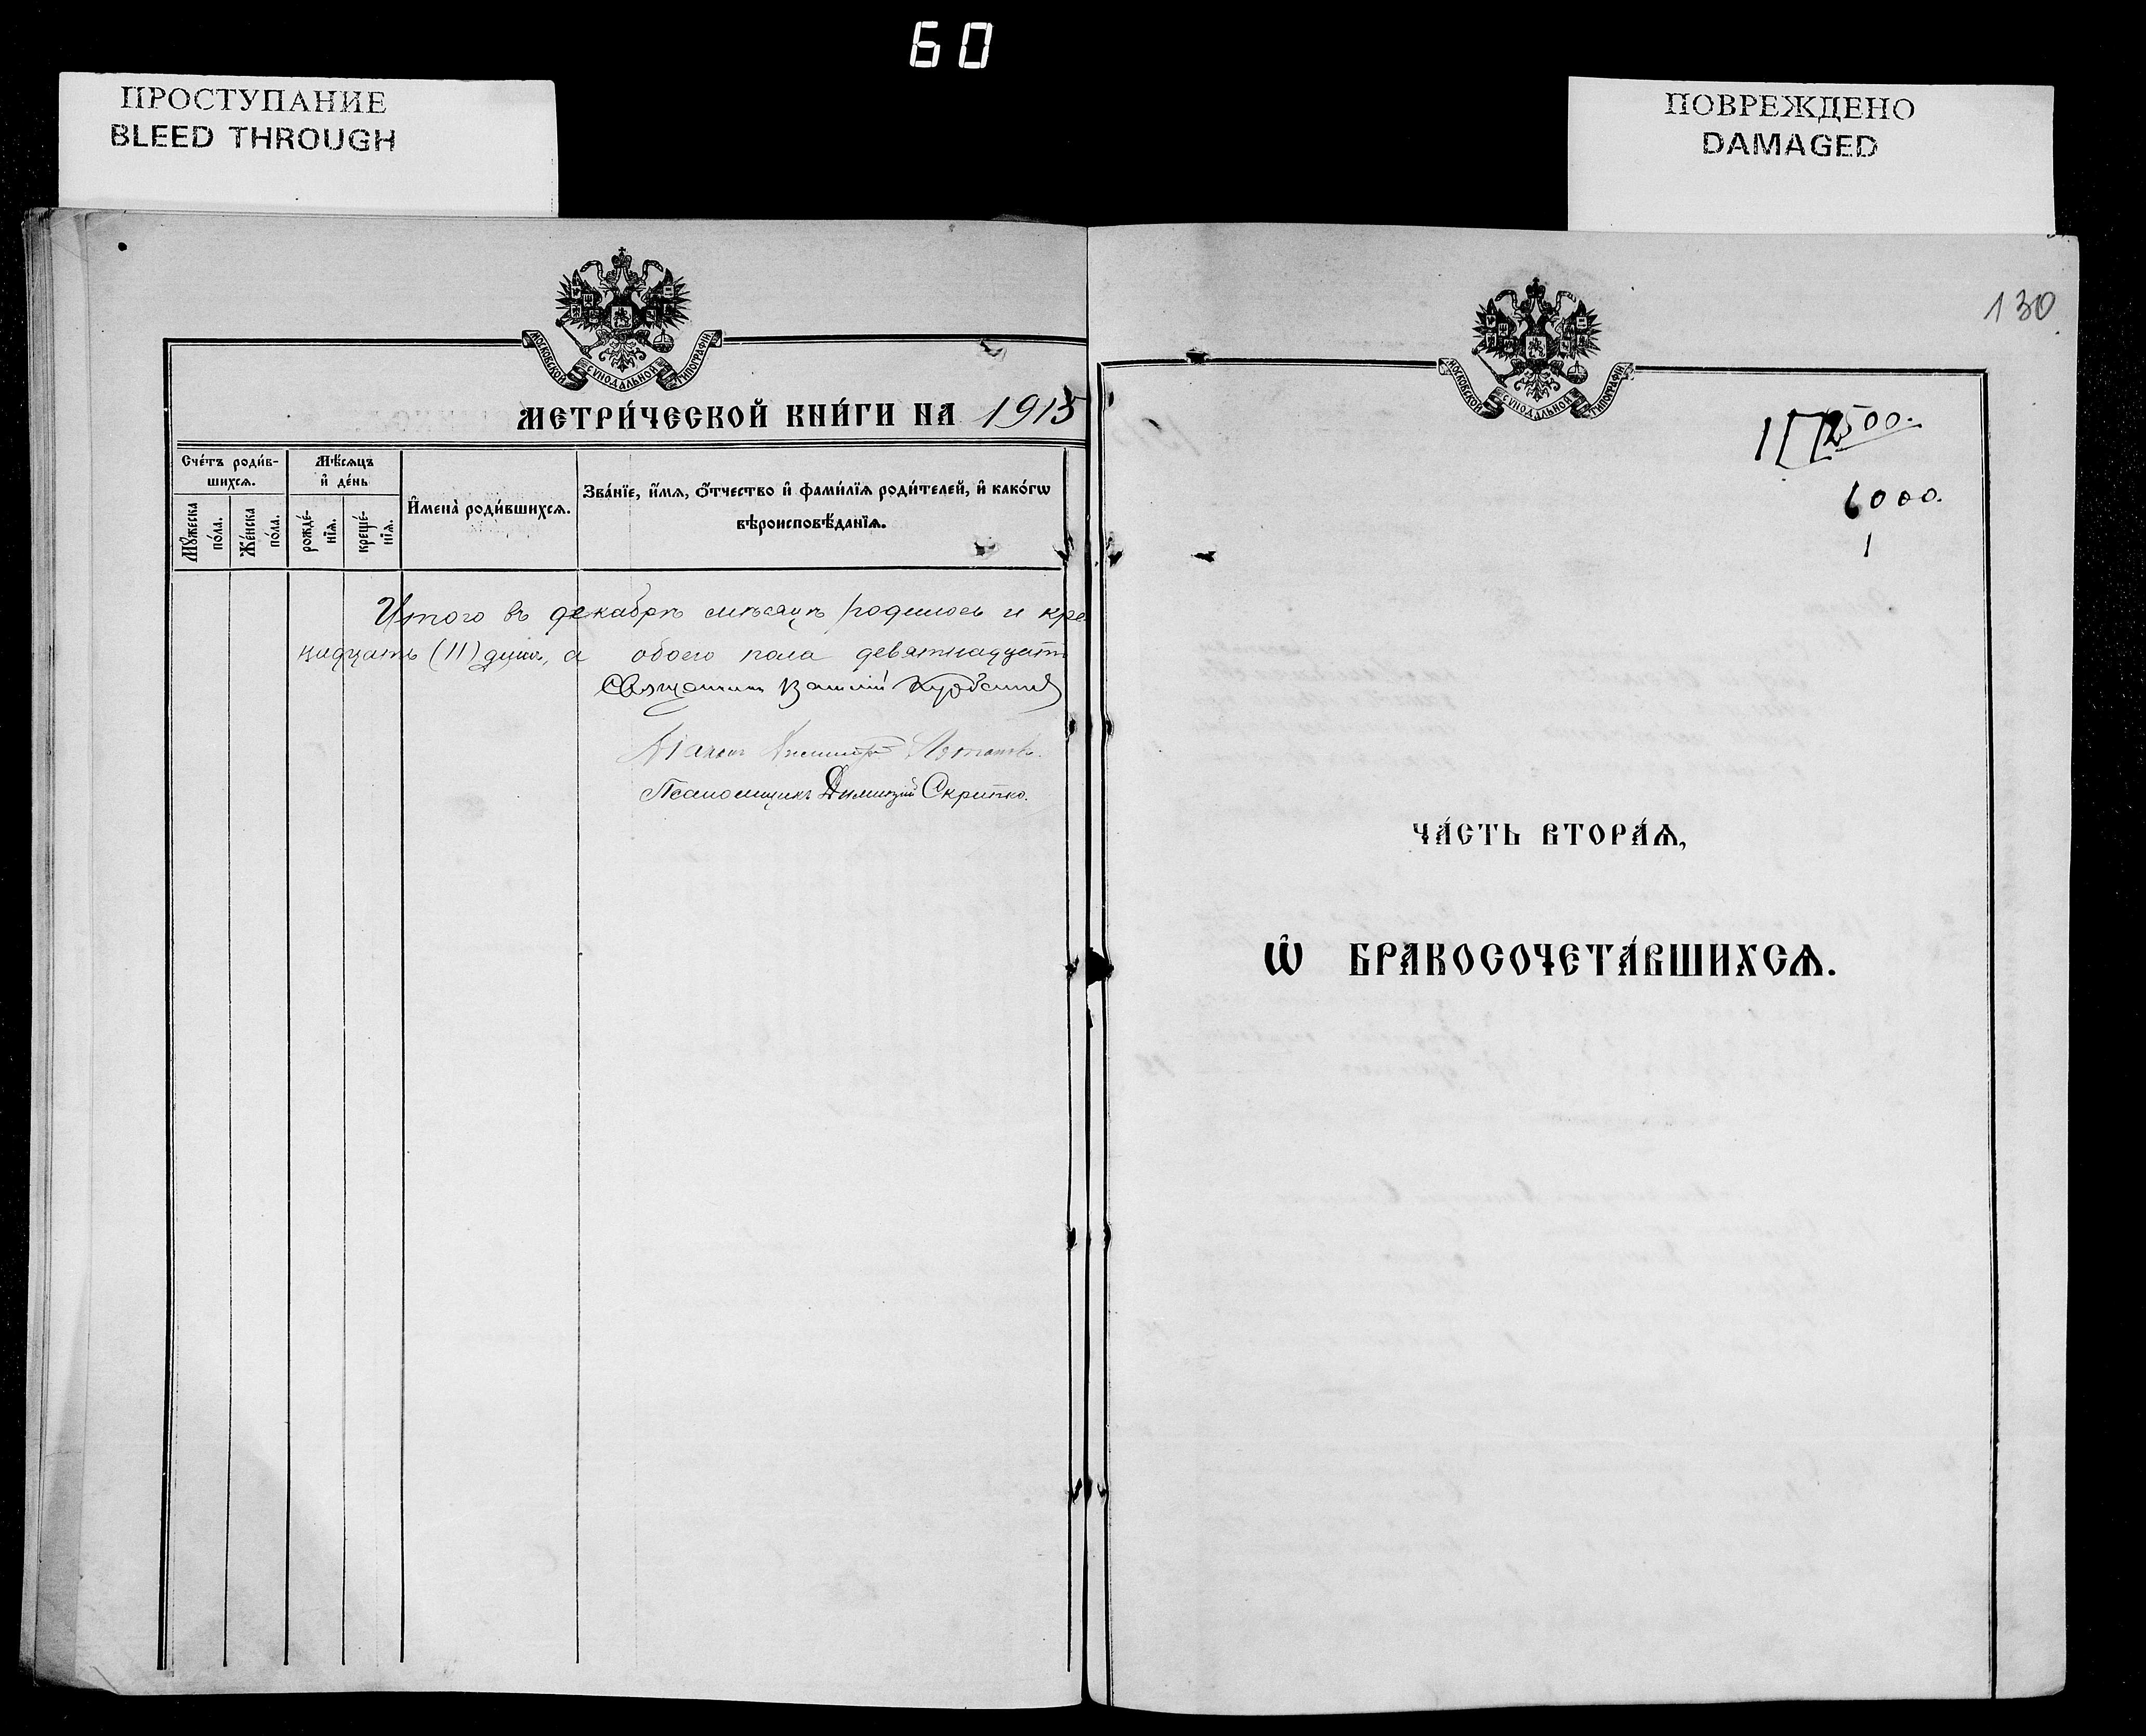 60
ПРОСТУПАНИЕ
BLEED THROUGH
ПОВРЕЖДЕНО
DAMAGED
МОСКОВСКОЙ СѴНОДАЛЬНОЙ ТИПОГРАФІИ
МЕТРИ́ЧЕСКОЙ КНИ́ГИ НА 1915
Сче́тъ роди́в-
шихсѧ.
Мѣ́сѧцъ
и҆ де́нь
И҆мена̀ роди́вшихсѧ.
Зва́нїе, и҆́мѧ, ѻ҆́тчество и҆ фами́лїѧ роди́телей, и҆ како́гѡ
вѣроисповѣ́данїѧ.
Мꙋ́жеска
по́ла.
Же́нска
по́ла.
рожде́-
нїѧ.
креще́-
нїѧ.
Итого въ декабрѣ мѣсяцѣ родилось и кре
надцать (11) душъ, а обоего пола девятнадцать
Священникъ Василій
Псаломщикъ Димитрій Скрипко.
130
МОСКОВСКОЙ СѴНОДАЛЬНОЙ ТИПОГРАФІИ
2500.
6000.
1
ЧА́СТЬ ВТОРА́Ѧ,
Ѡ҆ БРАКОСОЧЕТА́ВШИХСѦ.